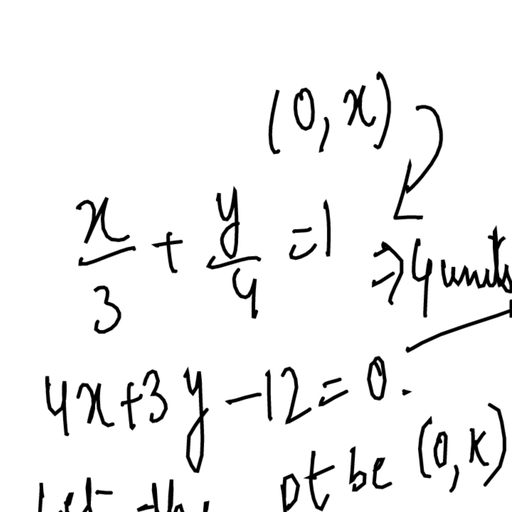 (0, x)
x/3 + y/4 = 1 ⇒ 4 units
4x + 3y - 12 = 0.
Let the pt be (0, K)